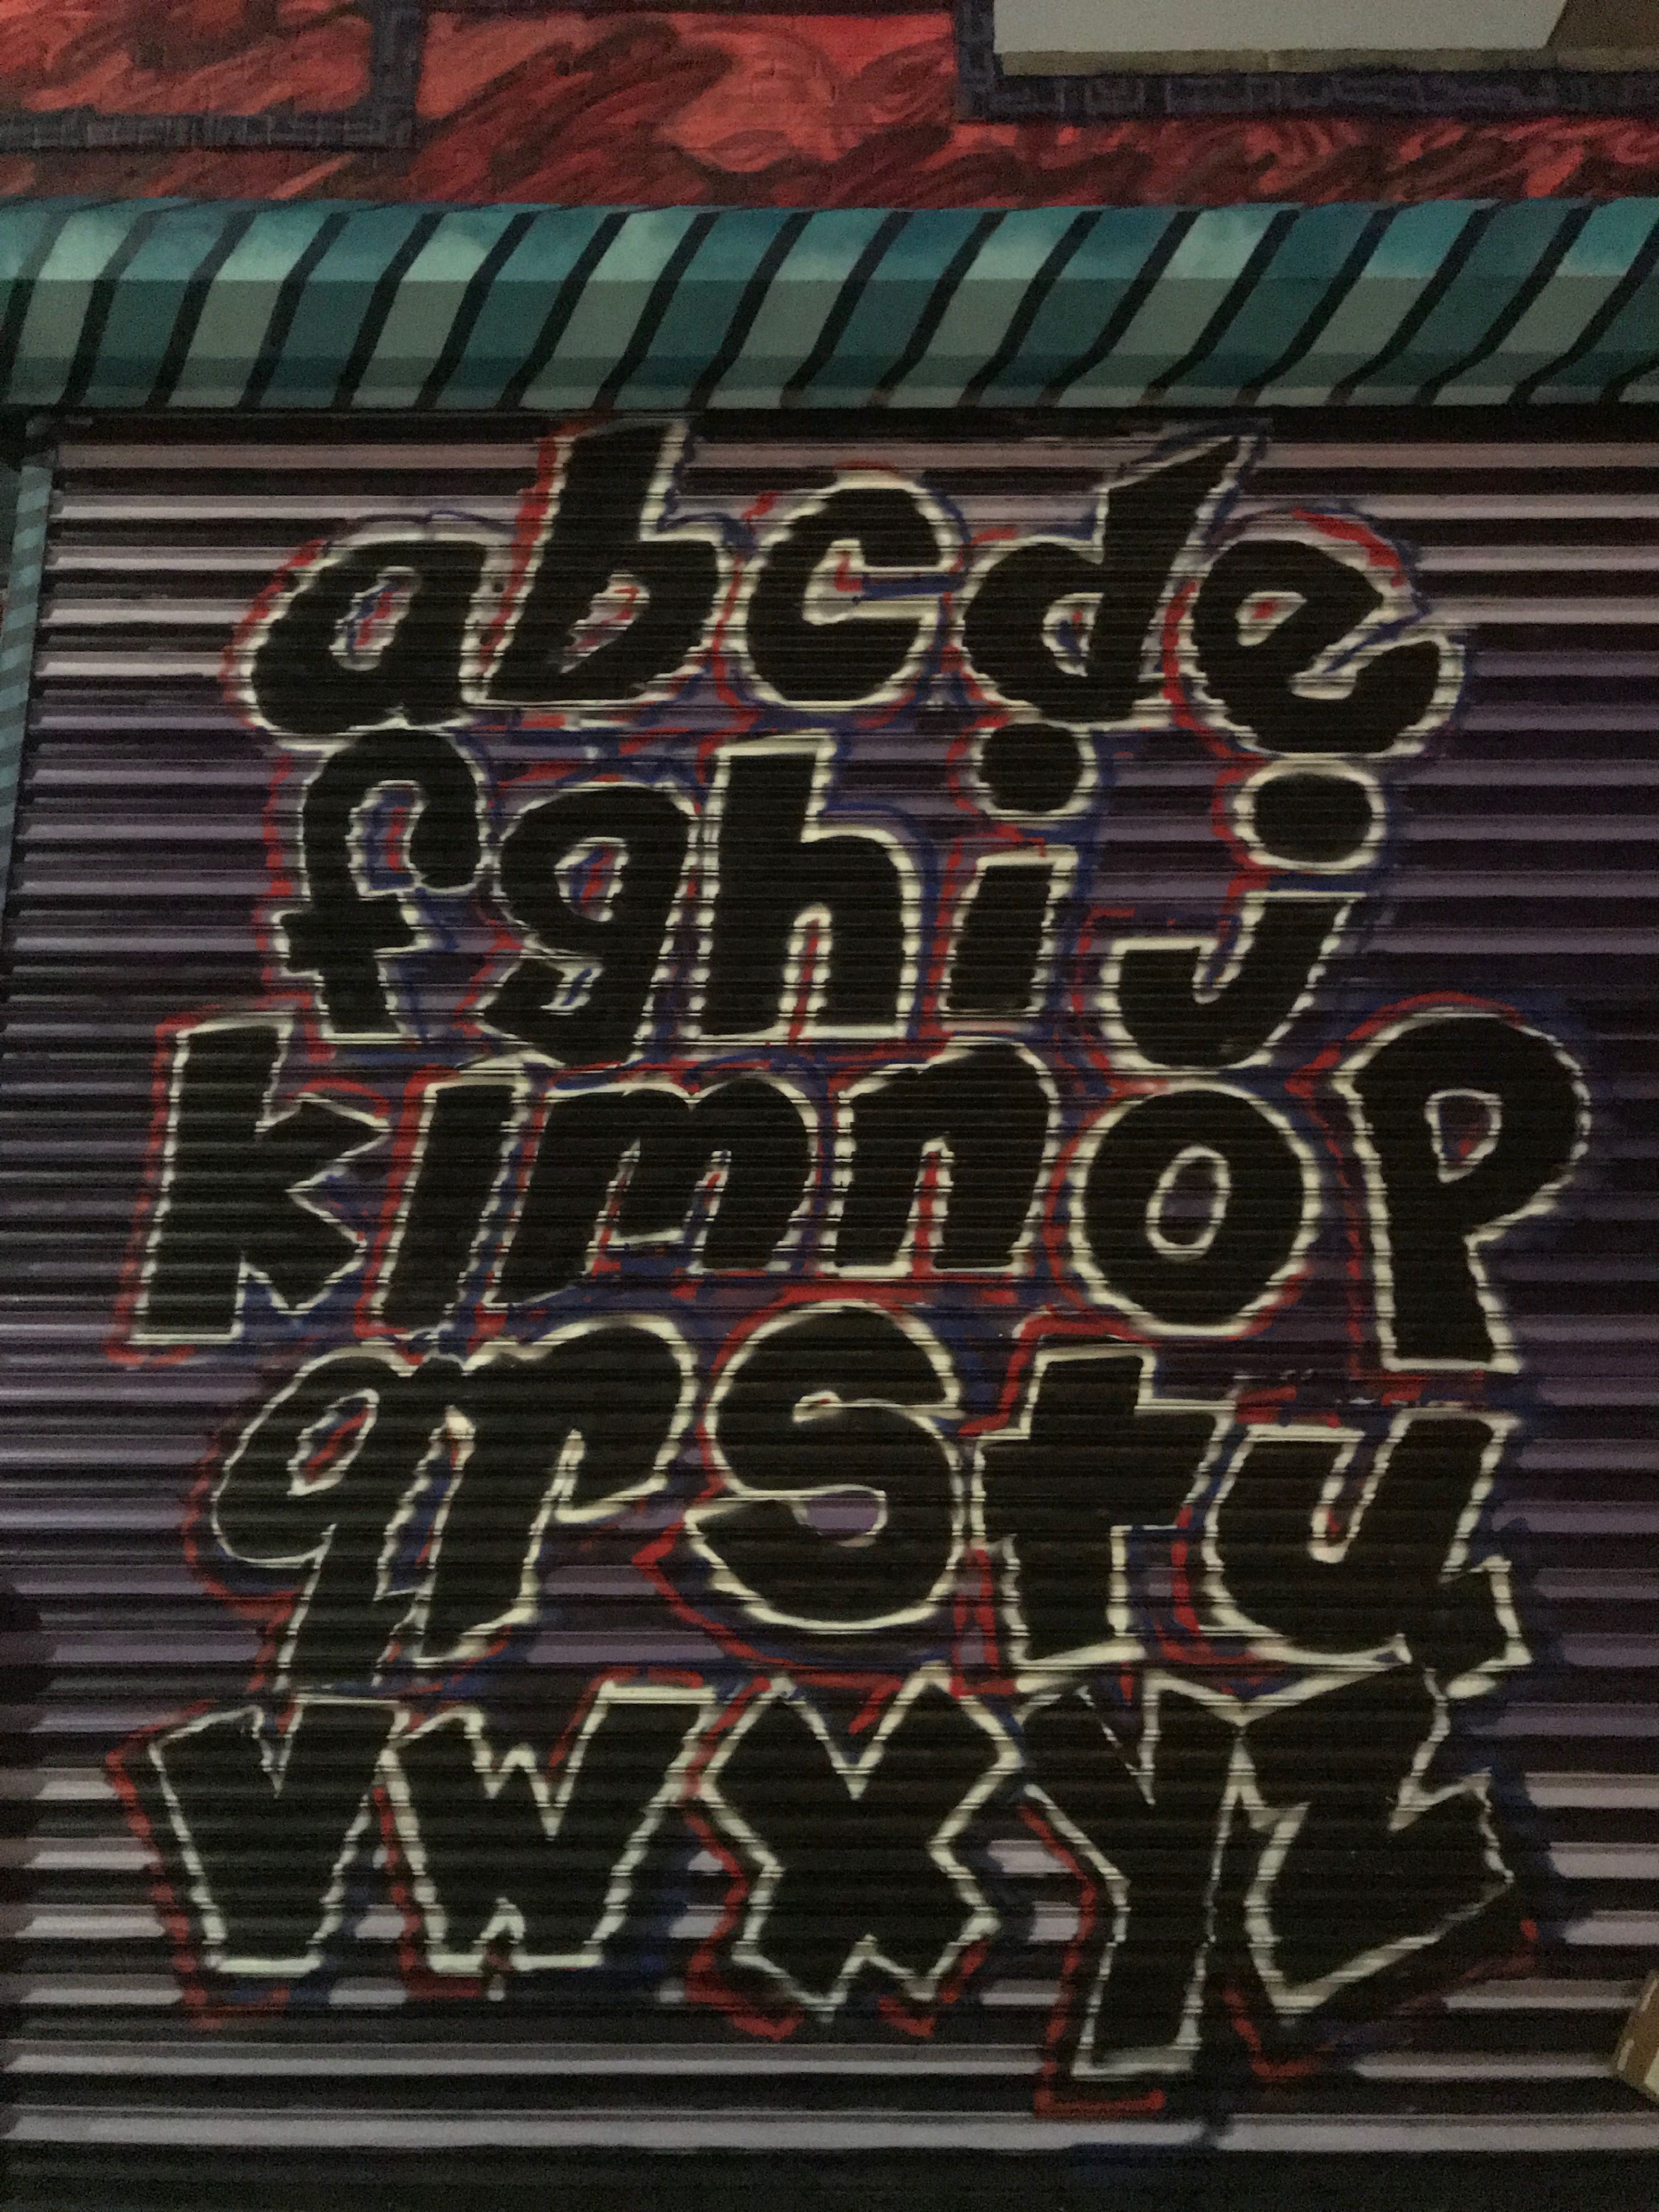 abcde
fghij
klmnop
qrstu
vwxyz